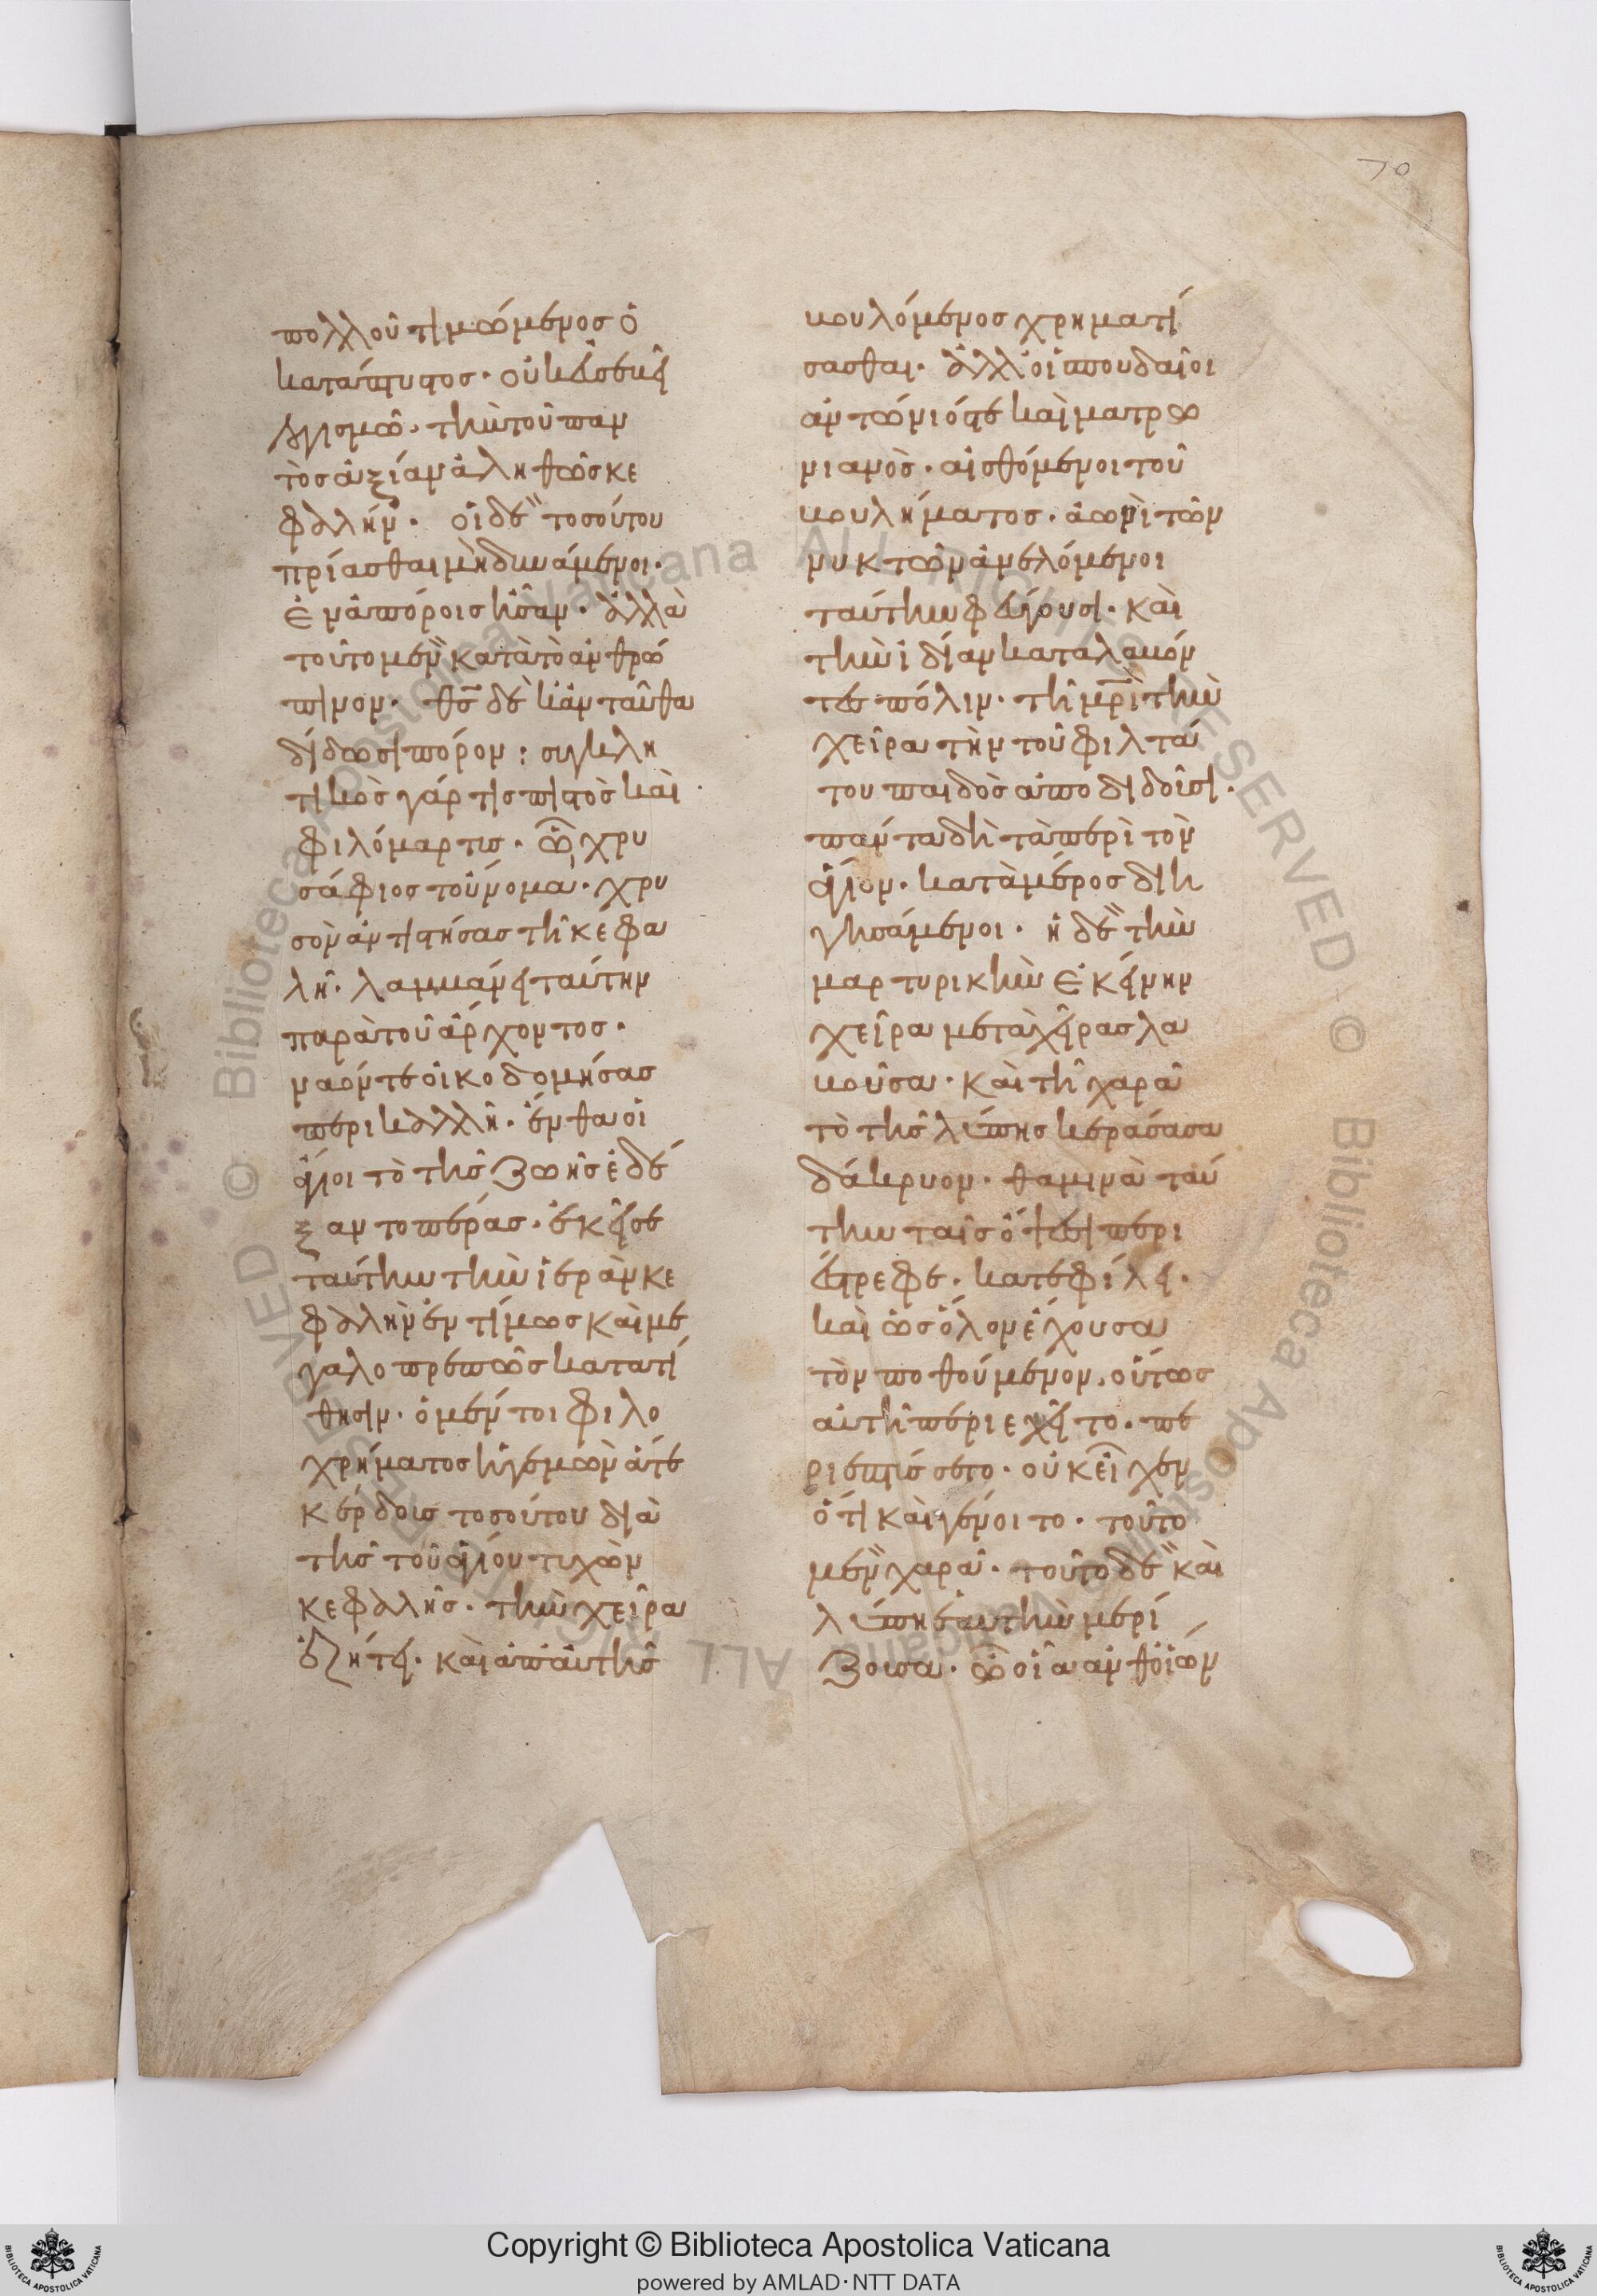 70
πολλοῦ τιμώμενος ὁ
κατάπτυστος· οὐκ ἀσεβεῖ
λογισμῶ· τὴν τοῦ παν
τὸς ἀξίαν ἀληθῶς κε
φαλήν· οἱ δὲ τοσούτου
πρίασθαι μὴ δυνάμενοι·
ἐν ἀπόροις ἦσαν· ἀλλὰ
τοῦτο μὲν κατὰ τὸ ἀνθρώ
πινον· θς δὲ κἀνταῦθα
δίδωσι πόρον: συγκλη
τικὸς γάρ τις πιστὸς καὶ
φιλόμαρτυς· ὦ χρυ
σάφιος τοὔνομα· χρυ
σὸν ἀντιστήσας τῆ κεφα
λῆ· λαμβάνει ταύτην
παρὰ τοῦ ἄρχοντος·
ναόν τε οἰκοδομήσας
περικαλλῆ· ἔνθα οἱ
ἅγιοι τὸ τῆς ζωῆς ἐδέ
ξαντο πέρας· ἐκεῖσε
ταύτην τὴν ἱερὰν κε
φαλὴν ἐντίμως καὶ με
γαλοπρεπῶς κατατί
θησιν· ὁ μέντοι φιλο
χρήματος ἡγεμὼν ἅτε
κέρδους τοσούτου διὰ
τῆς τοῦ ἁγίου τυχὼν
κεφαλῆς· τὴν χεῖρα
ἐζήτει· καὶ ἀπ' αὐτῆς
βουλόμενος χρηματί
σασθαι· ἀλλ' οἱ σπουδαῖοι
ἀντώνιός τε καὶ ματρω
νιανὸς· αἰσθόμενοι τοῦ
βουλήματος· ἀωρὶ τῶν
νυκτῶν ἀνελόμενοι
ταύτην φεύγουσι· καὶ
τὴν ἰδίαν καταλαβόν
τες πόλιν· τῆ μρὶ τὴν
χεῖρα τὴν τοῦ φιλτά
του παιδὸς ἀποδιδοῦσι·
πάντα δὴ τὰ περὶ τὸν
ἅγιον· κατὰ μέρος διη
γησάμενοι· ἡ δὲ τὴν
μαρτυρικὴν ἐκείνην
χεῖρα μετὰ χεῖρας λα
βοῦσα· καὶ τῆ χαρᾶ
τὸ τῆς λύπης κεράσασα
δάκρυον· θαμινὰ ταύ
την ταῖς ὄψεσι περι
έστρεφε· κατεφίλει·
καὶ ὡς ὅλον ἔχουσα
τὸν ποθούμενον, οὕτως
αὐτῆ περιεχεῖτο· πε
ριεπτύσσετο· οὐκ εἶχεν
ὅτι καὶ γένοιτο· τοῦτο
μὲν χαρᾶ· τοῦτο δὲ καὶ
λύπη ἑαυτὴν μερί
ζουσα· ὦ οἷα ἀνθ' οἵων
Copyright © Biblioteca Apostolica Vaticana
powered by AMLAD·NTT DATA